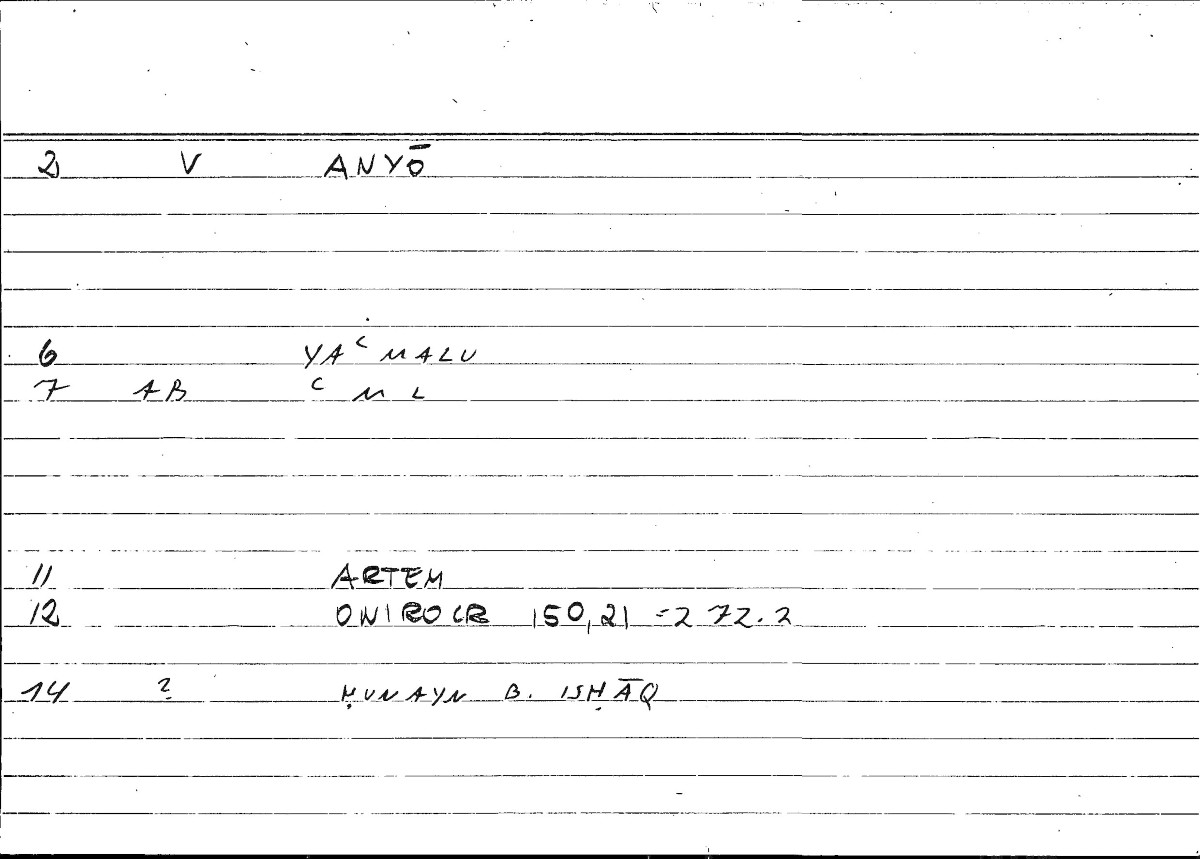 2 V ANYŌ
6 YAʿMALU
7 AB ʿ M L
11 ARTEM
12 ONIROCR 150,21 = 272.2
14 2 ḤUNAYN B. ISḤĀQ